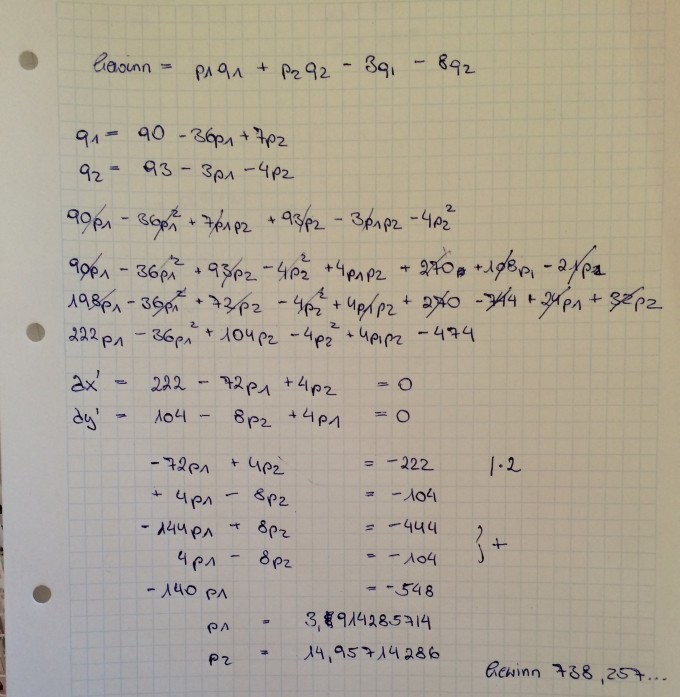 Gewinn = p1q1 + p2q2 - 3q1 - 8q2
q1 = 90 - 36p1 + 7p2
q2 = 93 - 3p1 - 4p2
90p1 - 36p1² + 7p1p2 + 93p2 - 3p1p2 - 4p2²
90p1 - 36p1² + 93p2 - 4p2² + 4p1p2 + 270 + 108p1 - 21p2
198p1 - 36p1² + 72p2 - 4p2² + 4p1p2 + 270 - 744 + 24p1 + 32p2
222p1 - 36p1² + 104p2 - 4p2² + 4p1p2 - 474
∂x' = 222 - 72p1 + 4p2 = 0
∂y' = 104 - 8p2 + 4p1 = 0
-72p1 + 4p2 = -222 |·2
+ 4p1 - 8p2 = -104
- 144p1 + 8p2 = -444 } +
4p1 - 8p2 = -104
- 140p1 = -548
p1 = 3,914285714
p2 = 14,95714286
Gewinn 738,257...